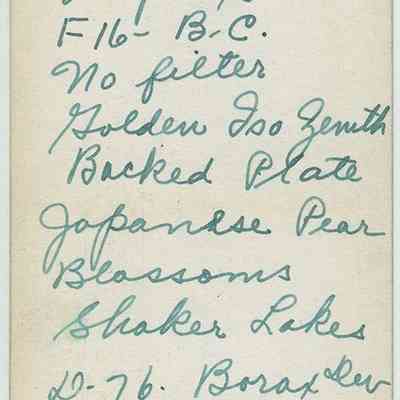 F16- B.C.
No filter
Golden Iso Zenith
Backed Plate
Japanese Pear
Blossoms
Shaker Lakes
D-76. Borax Dev